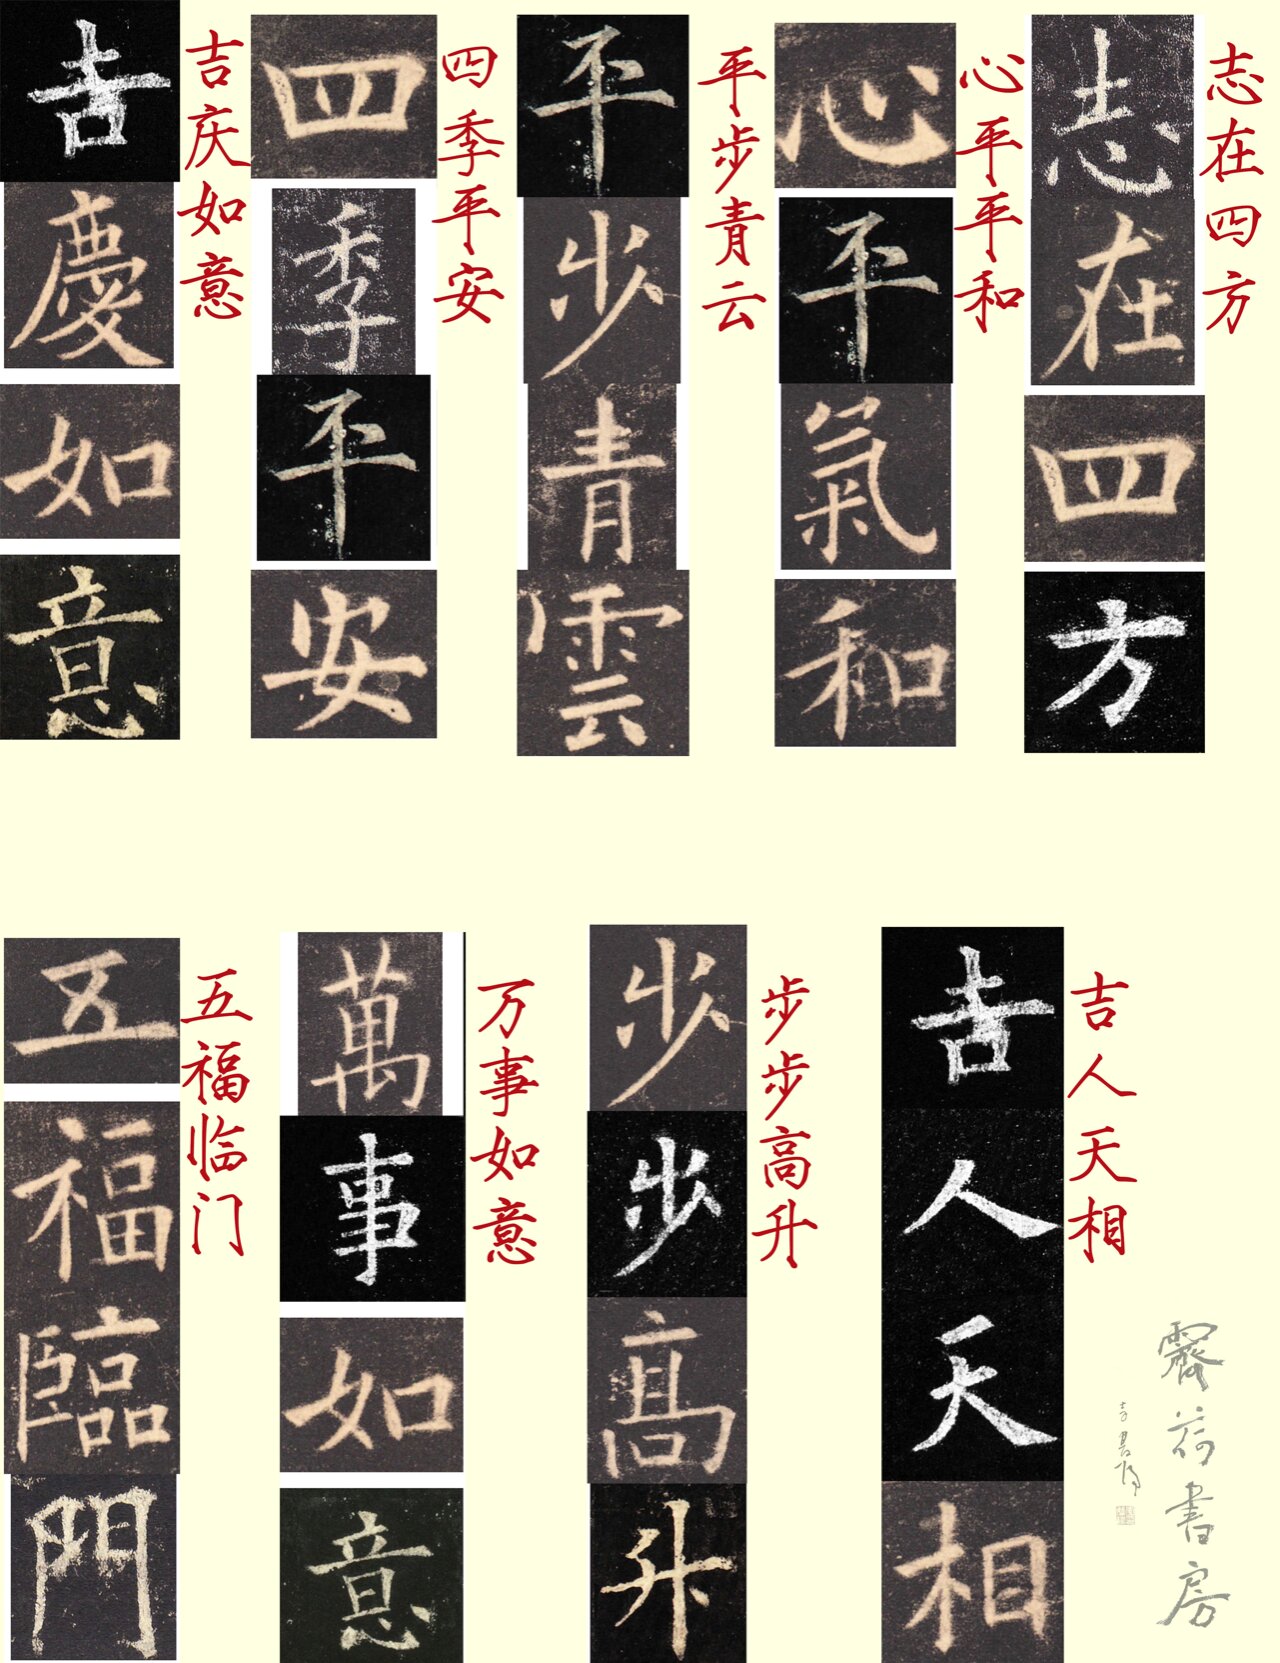 志在四方
志在四方
心平平和
心平氣和
平步青云
平步青雲
四季平安
四季平安
吉庆如意
吉慶如意
吉人天相
吉人天相
步步高升
步步髙升
万事如意
萬事如意
五福临门
五福臨門
霽荷書房